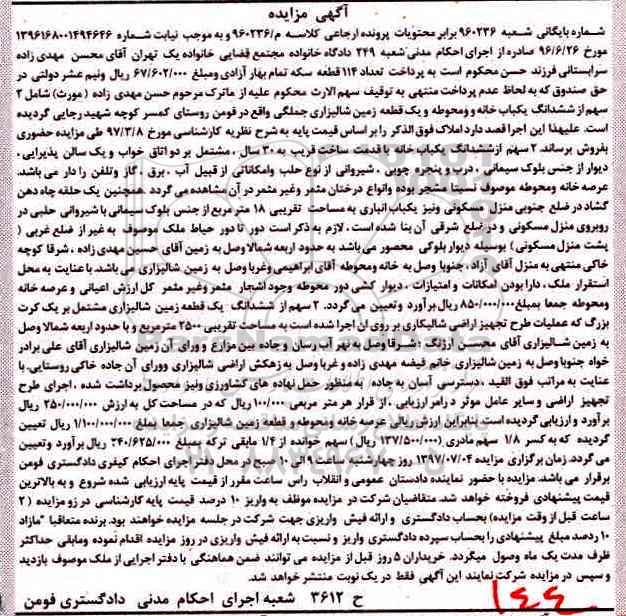 آگهی مزایده
شماره بایگانی شعبه ۹۶۰۲۳۶ برابر محتویات پرونده ارجاعی کلاسه م/۹۶۰۲۳۶ و به موجب نیابت شماره ۱۳۹۶۱۶۸۰۰۱۴۹۴۶۴۶
مورخ ۹۶/۶/۲۶ صادره از اجرای احکام مدنی شعبه ۲۴۹ دادگاه خانواده مجتمع قضایی خانواده یک تهران آقای محسن مهدی زاده
سرابستانی فرزند حسن محکوم است به پرداخت تعداد ۱۱۴ قطعه سکه تمام بهار آزادی ومبلغ ۶۷/۶۰۲/۰۰۰ ریال ونیم عشر دولتی در
حق صندوق که به لحاظ عدم پرداخت منتهی به توقیف سهم الارث محکوم علیه از ماترک مرحوم حسن مهدی زاده ( مورث) شامل ۲
سهم از ششدانگ یکباب خانه ومحوطه و یک قطعه زمین شالیزاری جملگی واقع در فومن روستای کمسر کوچه شهید رجایی گردیده
است. علیهذا این اجرا قصد دارد املاک فوق الذکر را بر اساس قیمت پایه به شرح نظریه کارشناسی مورخ ۹۷/۳/۸ طی مزایده حضوری
بفروش برساند. ۲ سهم ازششدانگ یکباب خانه با قدمت ساخت قریب به ۳۰ سال ، مشتمل بر دو اتاق خواب و یک سالن پذیرایی ،
دیوار از جنس بلوک سیمانی ، درب و پنجره چوبی ، شیروانی از نوع حلب وامکاناتی از قبیل آب ، برق ، گاز وتلفن را دار می باشد.
عرصه خانه ومحوطه موصوف نسبتا مشجر بوده وانواع درختان مثمر وغیر مثمر در آن مشاهده می گردد همچنین یک حلقه چاه دهن
گشاد در ضلع جنوبی منزل مسکونی ونیز یکباب انباری به مساحت تقریبی ۱۸ متر مربع از جنس بلوک سیمانی با شیروانی حلبی در
روبروی منزل مسکونی و در ضلع شرقی آن بنا شده است . لازم به ذکر است دور تا دور حیاط ملک موصوف به غیر از ضلع غربی (
پشت منزل مسکونی) بوسیله دیوار بلوکی محصور می باشد به حدود اربعه شمالا وصل به زمین آقای حسین مهدی زاده ، شرقا کوچه
خاکی منتهی به منزل آقای آزاد ، جنوبا وصل به خانه ومحوطه آقای ابراهیمی وغربا وصل به زمین شالیزاری می باشد. با عنایت به محل
استقرار ملک ، دارا بودن امکانات و امتیازات ، دیوار کشی دور محوطه وجود اشجار مثمر وغیر مثمر کل ارزش اعیانی و عرصه خانه
ومحوطه جمعا بمبلغ۸۵۰/۰۰۰/۰۰۰ ریال برآورد وتعیین می گردد. ۲ سهم از ششدانگ یک قطعه زمین شالیزاری مشتمل بر یک کرت
بزرگ که عملیات طرح تجهیز اراضی شالیکاری بر روی آن اجرا شده است به مساحت تقریبی ۲۵۰۰ مترمربع و با حدود اربعه شمالا وصل
به زمین شالیزاری آقای محسن ارژنگ ، شرقا وصل به نهر آب رسان و جاده بین مزارع و ورای آن زمین شالیزاری آقای علی برادر
خواه جنوبا وصل به زمین شالیزاری خانم فیضه مهدی زاده و غربا وصل به زهکش اراضی شالیزاری وورای آن جاده خاکی روستایی. با
عنایت به مراتب فوق القید ،دسترسی آسان به جاده/ به منظور حمل نهاده های کشاورزی ونیز محصول برداشت شده ، اجرای طرح
تجهیز اراضی و سایر عامل موثر د رامر ارزیابی ، از قرار هر متر مربعی ۱۰۰/۰۰۰ ریال که در مساحت کل به ارزش ۲۵۰/۰۰۰/۰۰۰ ریال
برآورد و ارزیابی گردیده است بنابراین ارزش ریالی عرصه خانه ومحوطه و قطعه زمین شالیزاری جمعا بمبلغ ۱/۱۰۰/۰۰۰/۰۰۰ ریال تعیین
گردیده که به کسر ۱/۸ سهم مادری (۱۳۷/۵۰۰/۰۰۰ ریال) سهم خوانده از ۱/۴ مابقی ترکه بمبلغ ۲۴۰/۶۲۵/۰۰۰ ریال برآورد وتعیین
می گردد. زمان برگزاری مزایده ۱۳۹۷/۰۷/۰۴ روز چهارشنبه ساعت ۹ الی ۱۰ صبح در محل دفتر اجرای احکام کیفری دادگستری فومن
برقرار می باشد. مزایده با حضور نماینده دادستان عمومی و انقلاب راس ساعت مقرر از قیمت پایه ارزیابی شده شروع و به بالاترین
قیمت پیشنهادی فروخته خواهد شد. متقاضیان شرکت در مزایده موظف به واریز ۱۰ درصد قیمت پایه کارشناسی در زو مزایده ( ۲
ساعت قبل از وقت مزایده) بحساب دادگستری و ارائه فیش واریزی جهت شرکت در جلسه مزایده خواهند بود. برنده متعاقبا "مازاد
۱۰ درصد مبلغ پیشنهادی را بحساب سپرده دادگستری واریز و نسبت به ارائه فیش واریزی در روز مزایده اقدام نموده ومابقی حداکثر
ظرف مدت یک ماه وصول میگردد. خریداران ۵ روز قبل از مزایده می توانند ضمن هماهنگی با دفتر اجرایی از ملک موصوف بازدید
و سپس در مزایده شرکت نمایند این آگهی فقط در یک نوبت منتشر خواهد شد.
ح ۳۶۱۲ شعبه اجرای احکام مدنی دادگستری فومن
۱۴۴